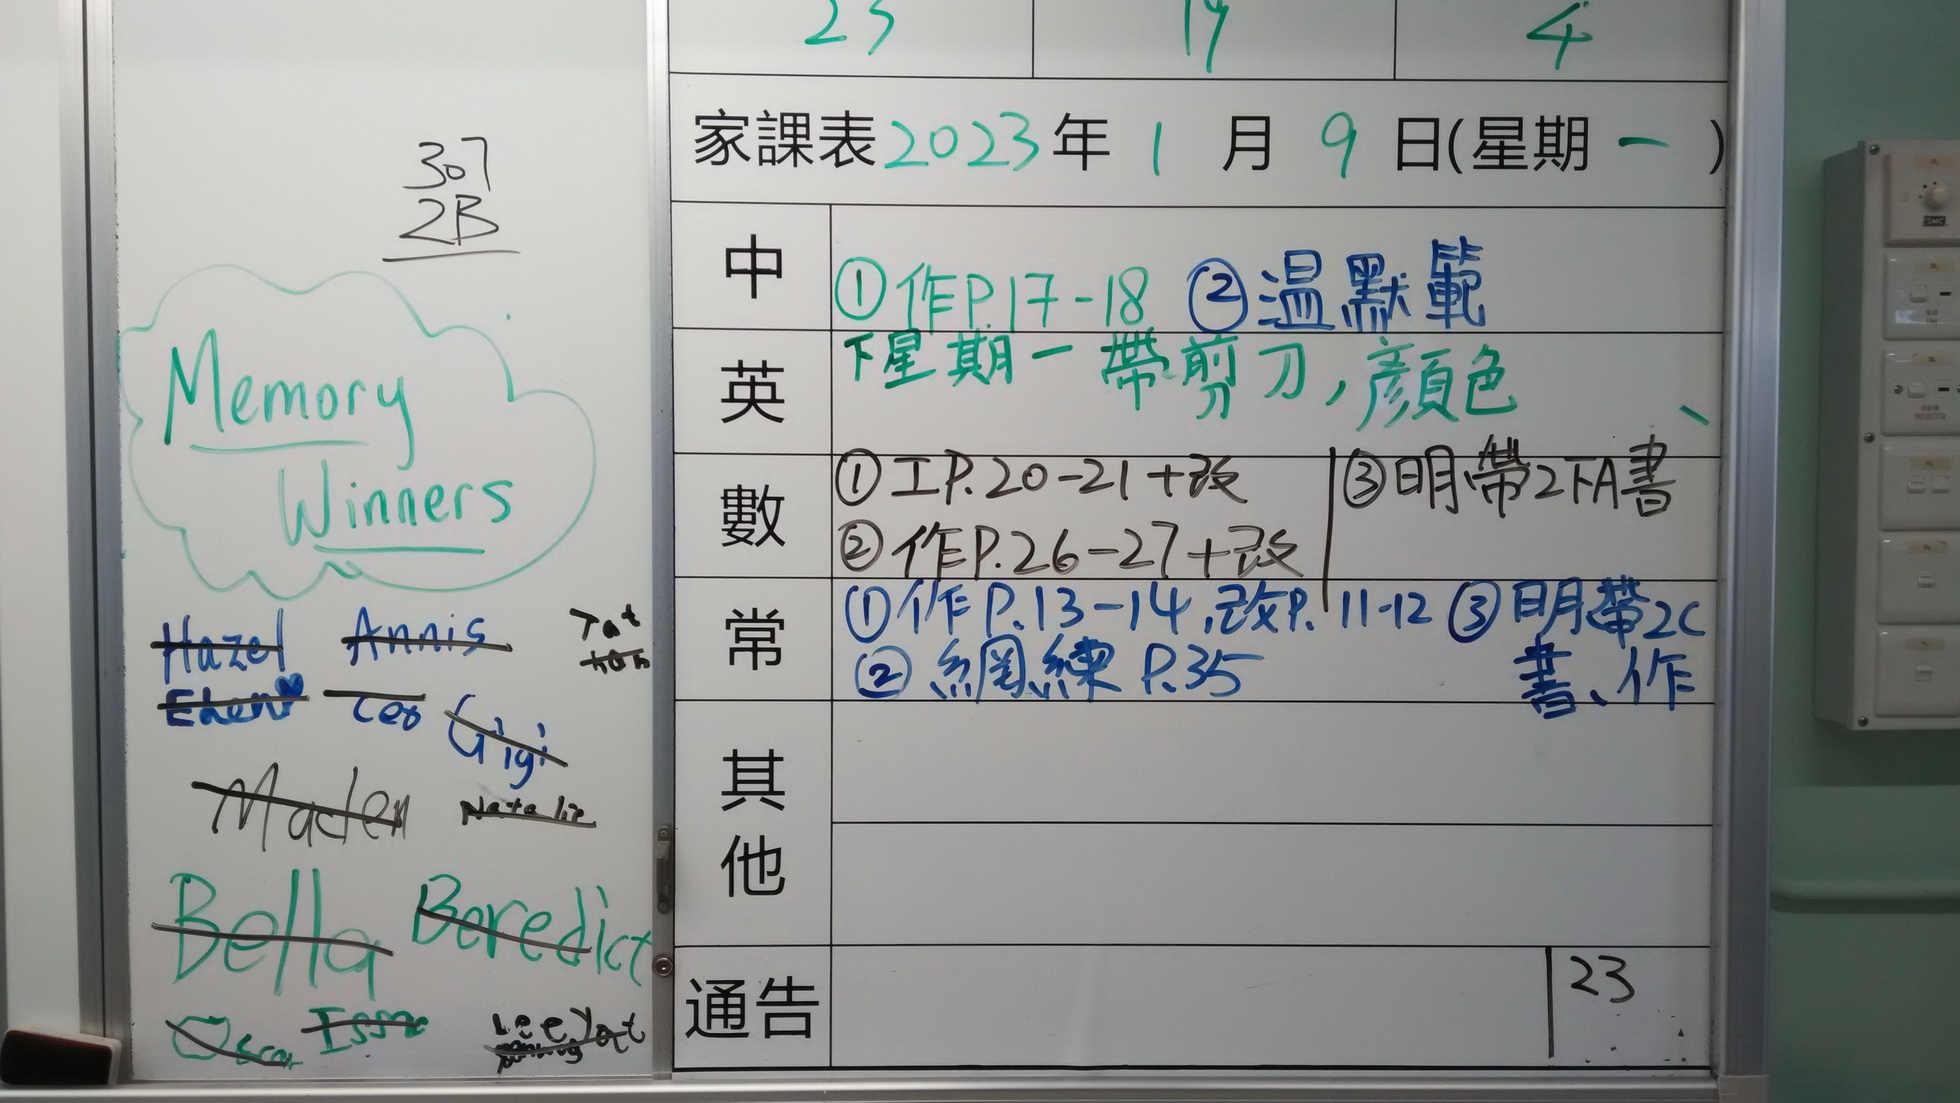 23 19 4
家課表2023年1月9日(星期一)
307
2B
中
①作P.17-18 ②溫默範
英
下星期一帶剪刀,顏色
數
①工P.20-21+改
②作P.26-27+改
③明帶2下A書
常
①作P.13-14,改P.11-12
②網練P.35
③明帶2C
書、作
其他
通告
23
Memory
Winners
Hazel Annis Tat
Eden
Gigi
Natalie
Bella Beredict
Lee Yat